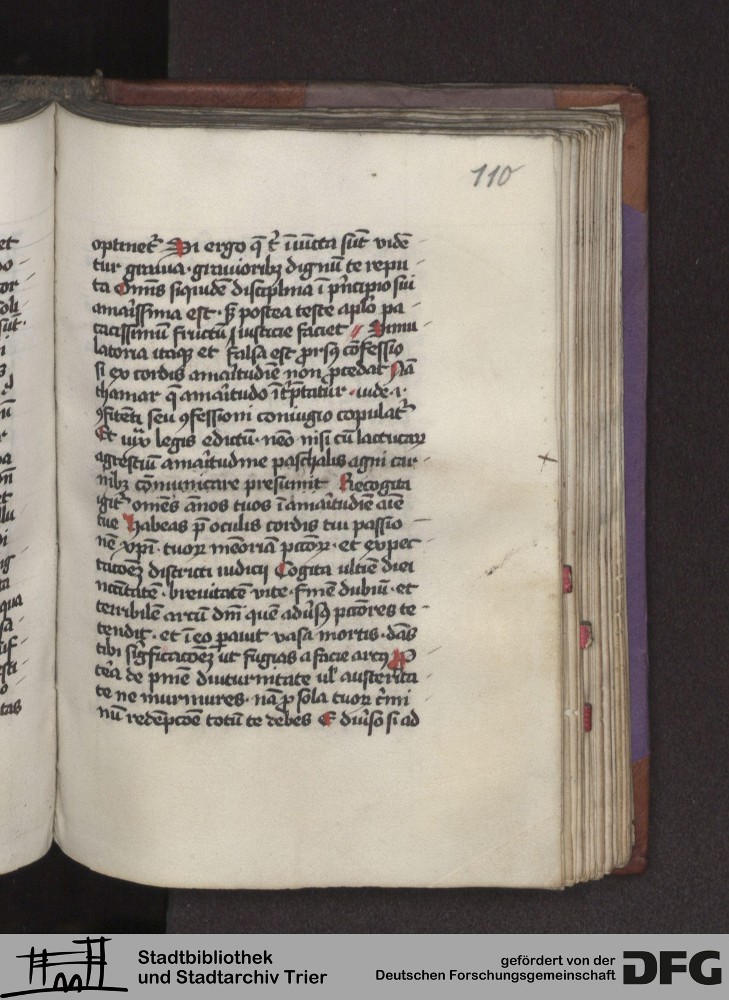 110
optinet᷑ Si ergo q̄ t᷑ iniūcta sūt vidē
tur grauia · grauioribꝫ dignū te repu
ta Om̄is siquidē disciplina ī pⁱncipio sui
amarissima est · sꝫ postea teste aplo pa
catissimū fructū iusticie faciet Simu
latoria itaqꝫ et falsa est prorsꝰ cōfessio
si ex cordis amaritudīe non ꝓcedat Nā
thamar q̄ amaritudo īt᷑p̄tatur · iude ·i·
ꝯfitēti seu ꝯfessioni coniugio copulat᷑
Et iux̄ legis edictū · nō nisi cū lactucaꝝ
agrestiū amaritudine paschalis agni car
nibꝫ cōmunicare presumit Recogita
igit᷑ omēs ānos tuos ī amaritudīe aīe
tue Habeas p̄ oculis cordis tui passio
nē xpī · tuoꝝ mēoriā pctōꝝ · et expec
tatōeꝫ districti iudicij Cogita vltīe diei
 · breuitatē vite · fīnē dubiū · et
terribilē arcū dnī quē adūsꝰ pctōres te
tendit · et ī eo parauit vasa mortis · dās
tibi sigficatōeꝫ ut fugias a facie arcꝰ P
t᷑ea de pnīe diuturnitate ul᷑ austerita
te ne murmures · nā ꝓ sola tuoꝝ c᷑mi
nū redēpcōe totū te debes Et diūso si ad
Stadtbibliothek
und Stadtarchiv Trier
gefördert von der
Deutschen Forschungsgemeinschaft
DFG